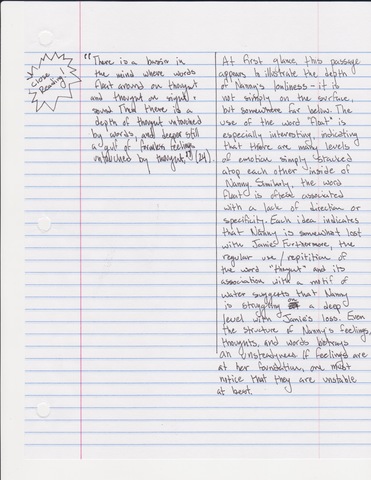 Close
Reading!
"There is a basin in
the mind where words
float around on thought
and thought on sound &
sound. Then there is a
depth of thought untouched
by words, and deeper still
a gulf of formless feelings
untouched by thought." (24).
At first glance, this passage
appears to illustrate the depth
of Nanny's lonliness - it is
not simply on the surface,
but somewhere far below. The
use of the word "float" is
especially interesting, indicating
that there are many levels
of emotion simply stacked
atop each other inside of
Nanny. Similarly, the word
float is often associated
with a lack of direction or
specificity. Each idea indicates
that Nanny is somewhat lost
with Janie. Furthermore, the
regular use/repitition of
the word "thought" and its
association with a motif of
water suggests that Nanny
is struggling a deep
level with Janie's loss. Even
the structure of Nanny's feelings,
thoughts, and words betrays
an unsteadyness. If feelings are
at her foundation, one must
notice that they are unstable
at best.